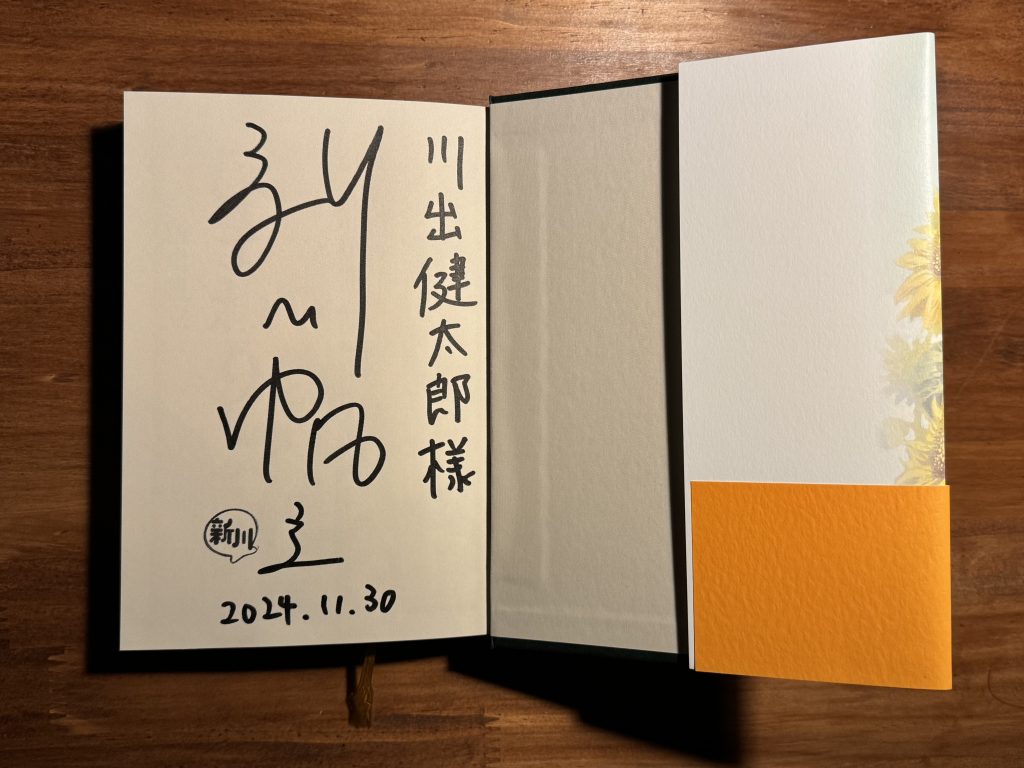 川出健太郎様
新川帆立
新川
2024.11.30